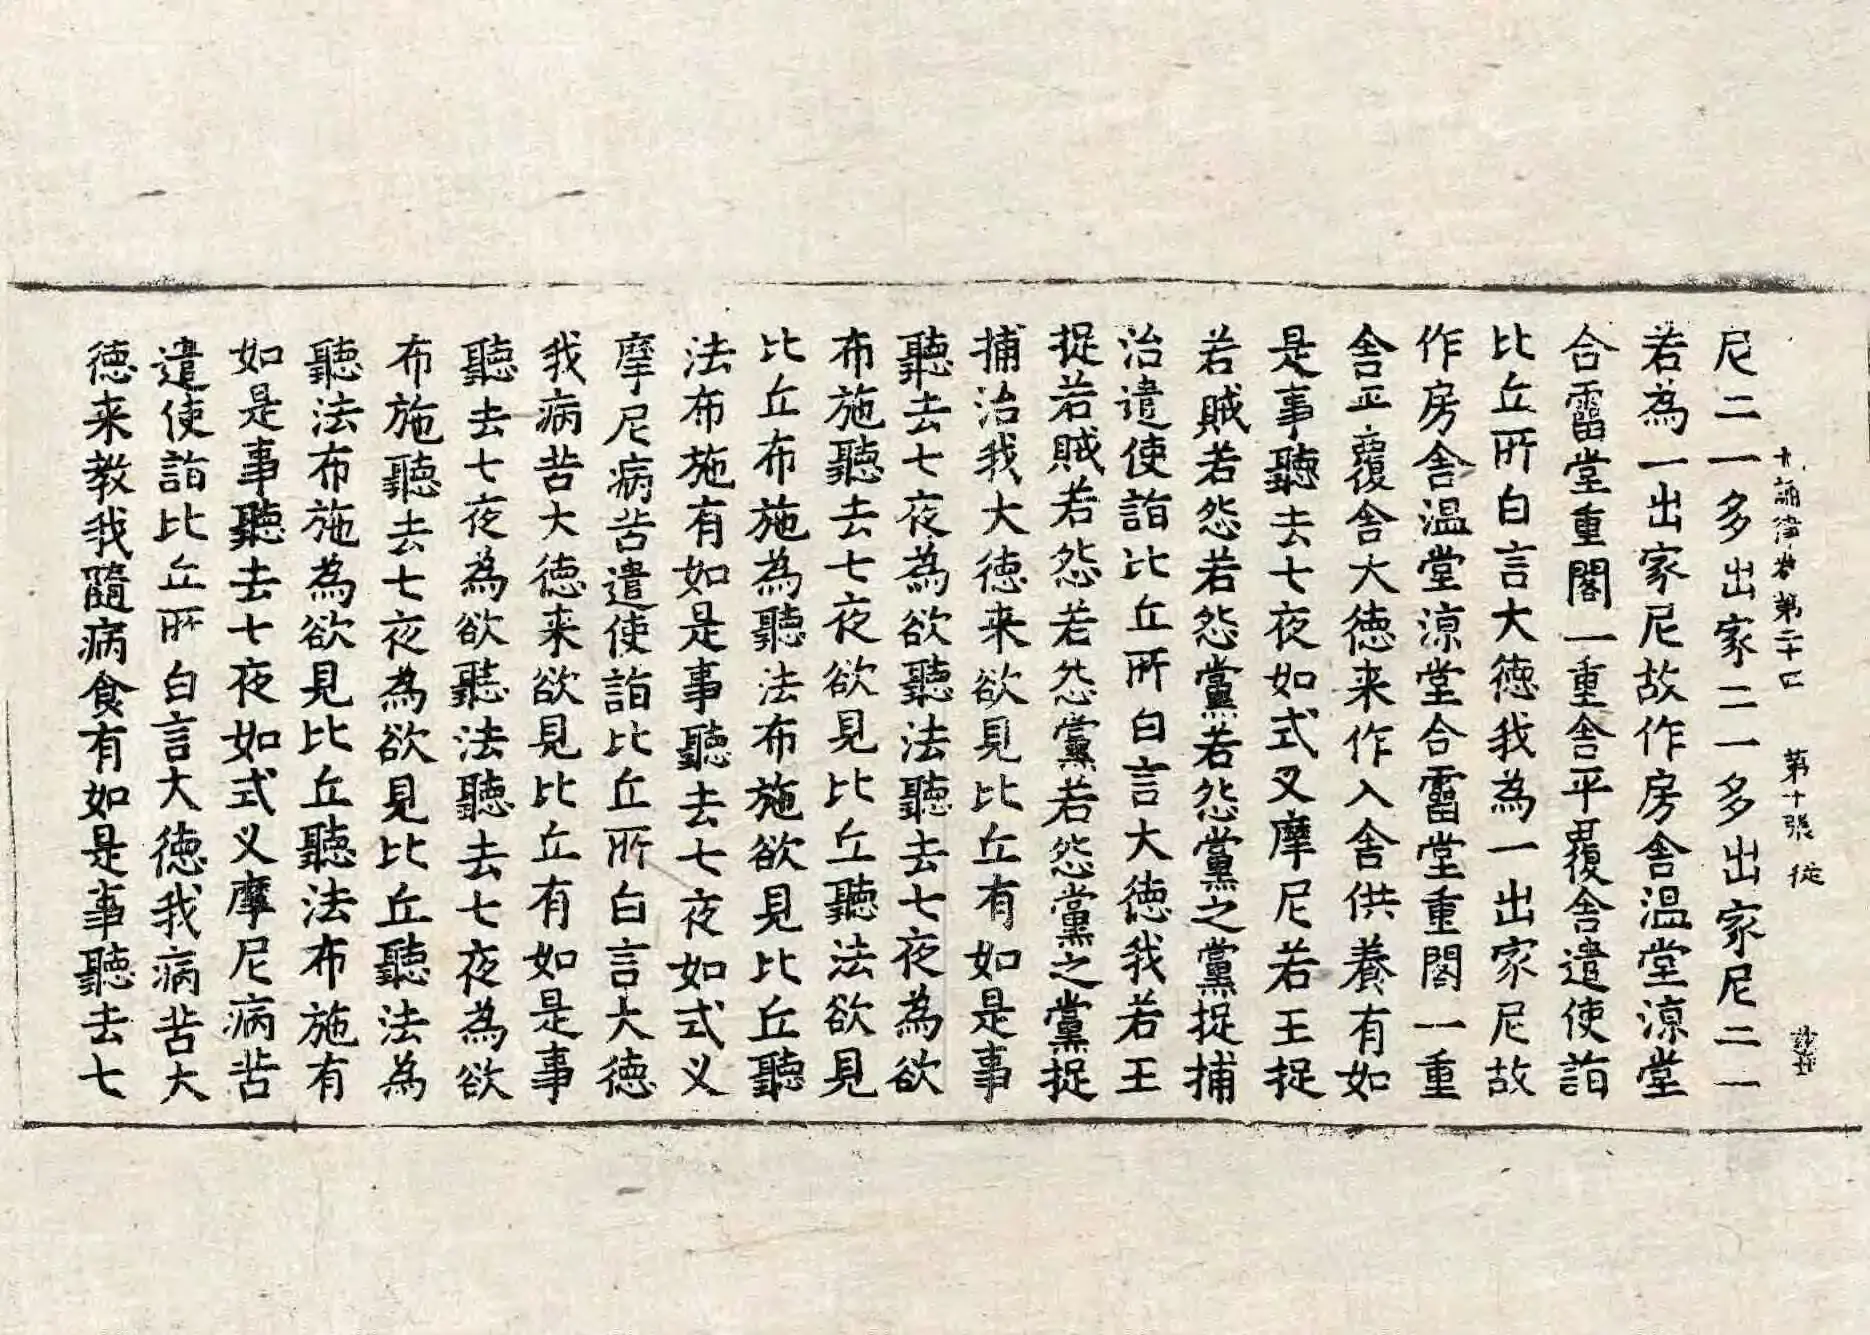 十誦律卷第二十四 第十張 從
尼二一多出家二一多出家尼二一
若為一出家尼故作房舎温堂涼堂
合霤堂重閣一重舎平覆舎遣使詣
比丘所白言大徳我為一出家尼故
作房舎温堂涼堂合霤堂重閣一重
舎平覆舎大徳来作入舎供養有如
是事聽去七夜如式叉摩尼若王捉
若賊若怨若怨黨若怨黨之黨捉捕
治遣使詣比丘所白言大徳我若王
捉若賊若怨若怨黨若怨黨之黨捉
捕治我大徳来欲見比丘有如是事
聽去七夜為欲聽法聽去七夜為欲
布施聽去七夜欲見比丘聽法欲見
比丘布施為聽法布施欲見比丘聽
法布施有如是事聽去七夜如式叉
摩尼病苦遣使詣比丘所白言大徳
我病苦大徳来欲見比丘有如是事
聽去七夜為欲聽法聽去七夜為欲
布施聽去七夜為欲見比丘聽法為
聽法布施為欲見比丘聽法布施有
如是事聽去七夜如式叉摩尼病苦
遣使詣比丘所白言大徳我病苦大
徳来教我隨病食有如是事聽去七